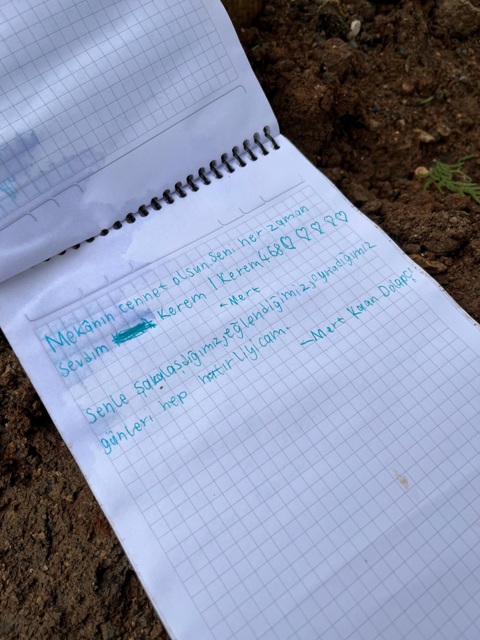 Mekanın cennet olsun seni her zaman
sevdim Kerem 1 Kerem468♡ ♡ ♡ ♡ ♡
-Mert
Senle şakalaştığımız, eğlendiğimiz, oynadığımız
günleri hep hatırlıyıcam.
-Mert Kaan